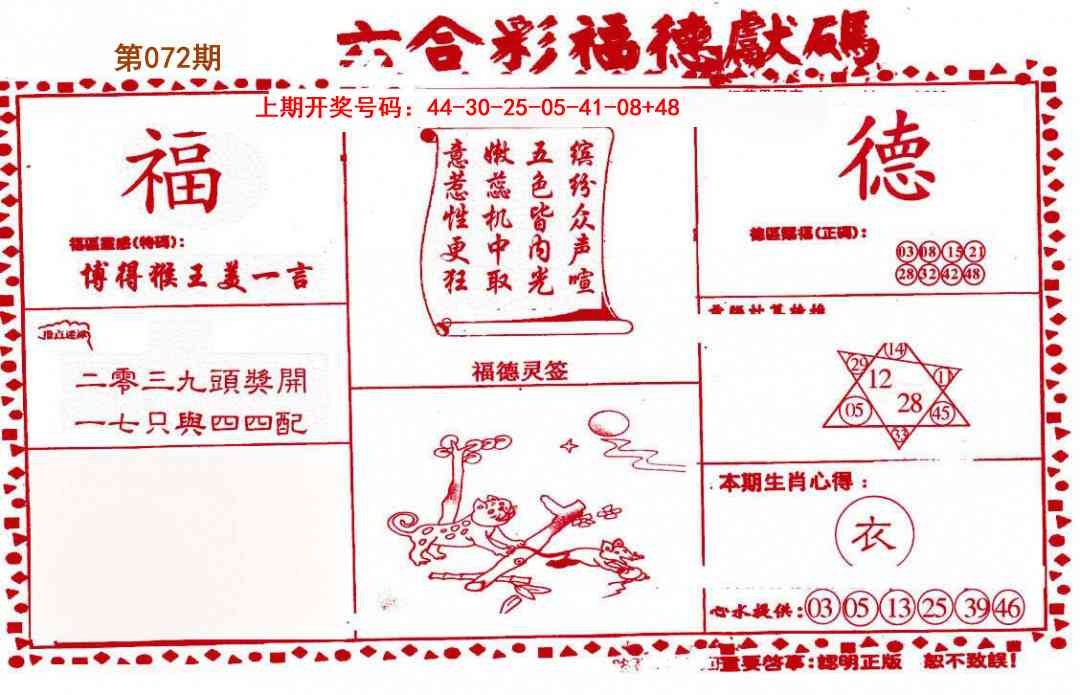 六合彩福德獻碼
第072期
上期开奖号码：44-30-25-05-41-08+48
福
福區靈感(特碼)：
博得猴王美一言
二零三九頭獎開
一七只與四四配
缤纷众声喧
五色皆内光
嫩蕊机中取
意惹性更狂
福德灵签
德
德區賜福(正碼)：
03 08 15 21
28 32 42 48
14
29
12
05
28
45
33
本期生肖心得：
衣
心水提供：03 05 13 25 39 46
重要啓事：認明正版 恕不致誤！